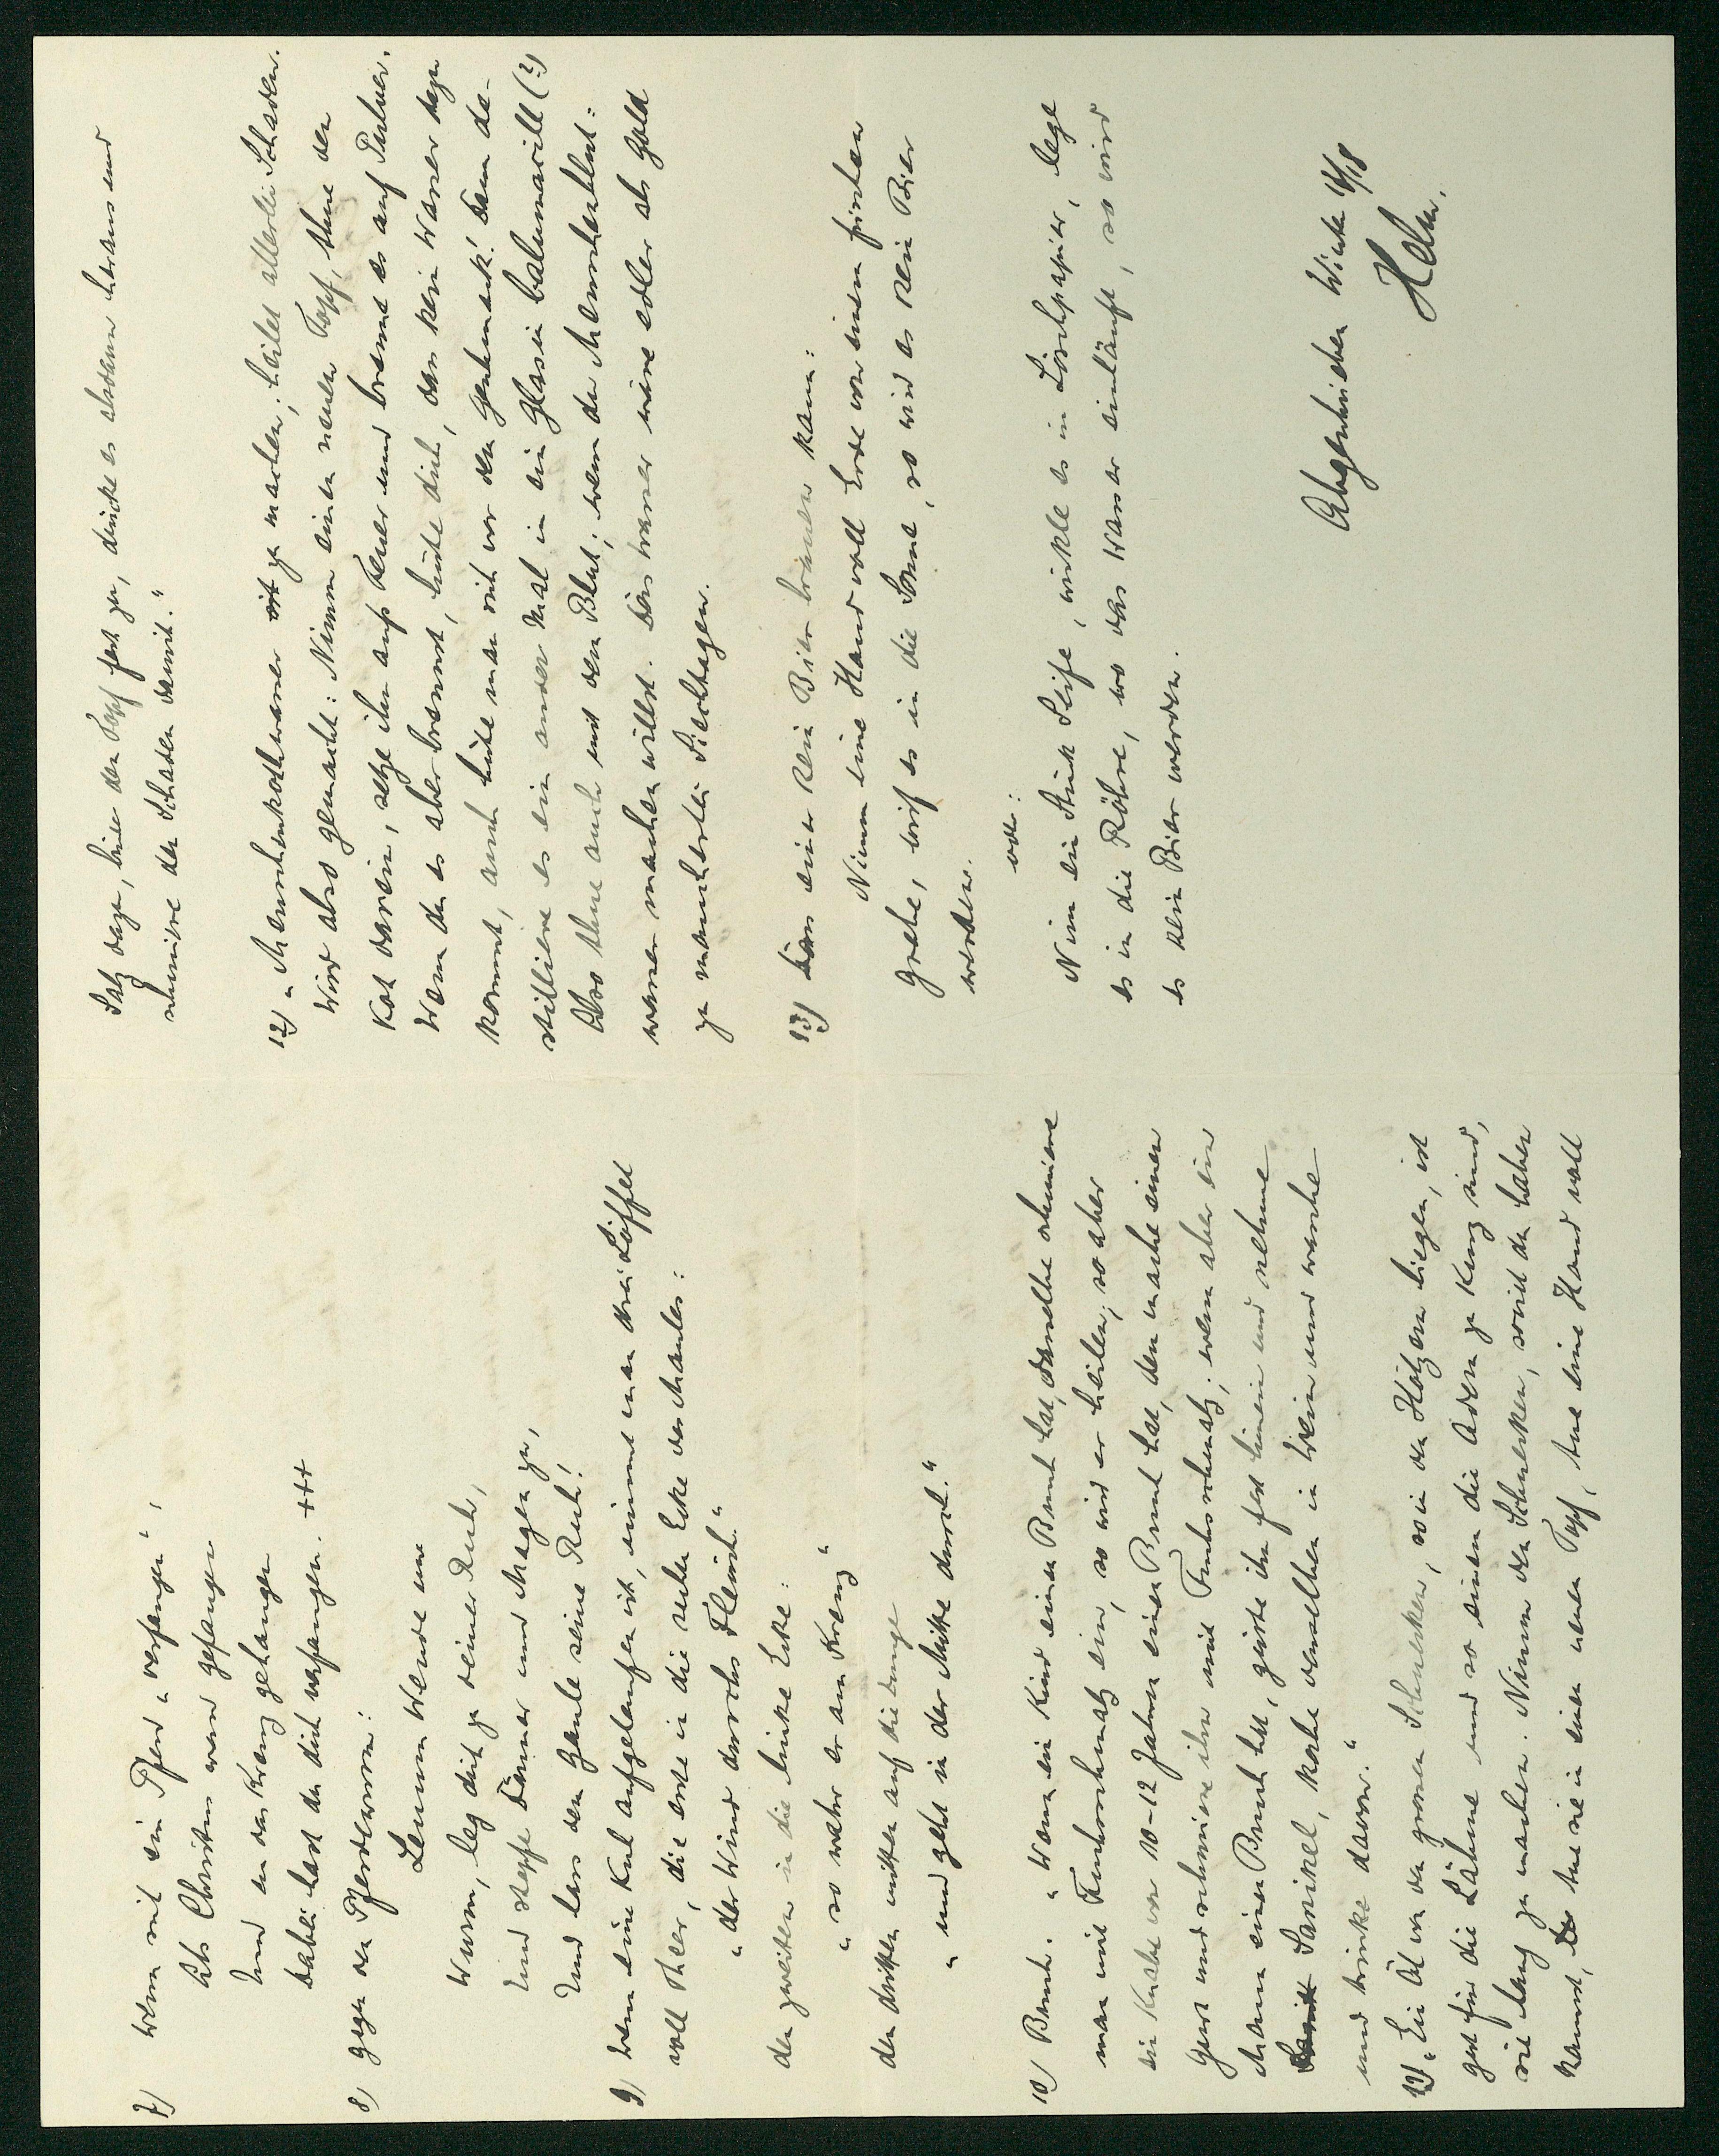 7) Wenn sich ein Pferd „verfangen“,
Als Christus ward gefangen
Und an das Kreuz gehangen
Dabei hast du dich verfangen. +++
8) Gegen den Pferdewurm:
Lenum Wende um
Wurm, leg dich zu deiner Ruh,
Und stepfe Därmer und Magen zu,
Und lass dem Gaule seine Ruh!
9) Wenn eine Kuh aufgelaufen ist, nimmt man drei Löffel
voll Theer, die erste in die rechte Ecke des Maules:
„der Wind durchs Fleisch“
den zweiten in die linke Ecke:
„so wahr er am Kreuz“
den dritten mitten auf die Zunge
„und geht in der Mitte durch.“
10) Bruch. „Wenn ein Kind einen Bruch hat, dasselbe schmiere
man mit Fuchsschmalz ein, so wird er heilen; so aber
ein Knabe von 10-12 Jahren einen Bruch hat, dem mache einen
Gurt und schmiere ihn mit Fuchsschmalz; wenn aber ein
Mann einen Bruch hat, gürte ihn fest hinein und nehme
Sanikel, koche denselben in Wein und wasche
und trinke davon.“
11) „Ein Öl von den grossen Schnecken, so in den Hölzern liegen, ist
gut für die Lähme und so einem die Adern zu kurz sind,
sie lang zu machen. Nimm der Schnecken, soviel du haben
kannst, tue sie in einen neuen Topf, tue eine Hand voll
Salz dazu, binde den Topf fest zu, drücke es alsdann heraus und
schmiere den Schaden damit.“
12) „Menschenkothwasser zu machen; heilet allerlei Schaden.
Wird also gemacht: Nimm einen neuen Topf, thue den
Kot darein, setze ihn aufs Feuer und brenne es auf Pulver.
Wenn du es aber brennst, hüte dich, dass kein Wasser dazu
kommt, auch hüte man sich vor dem Geschmack! Dann de-
stilliere es ein ander Mal in ein Glas in balnumarill (?)
Also thue auch mit dem Blut; wenn du Menschenblut-
wasser machen willst. Das Wasser wäre edler als Gold
zu mancherlei Siechtagen.
13) Dass einer kein Bier brauen kann:
Nimm eine Hand voll Erde von einem frischen
Grabe, wirf es in die Sonne, so wird es kein Bier
werden.
oder:
Nim ein Stück Seife, wickle es in Löschpapier, lege
es in die Röhre, wo das Wasser einläuft, so wird
es kein Bier werden.
Abgeschrieben
Hahn.